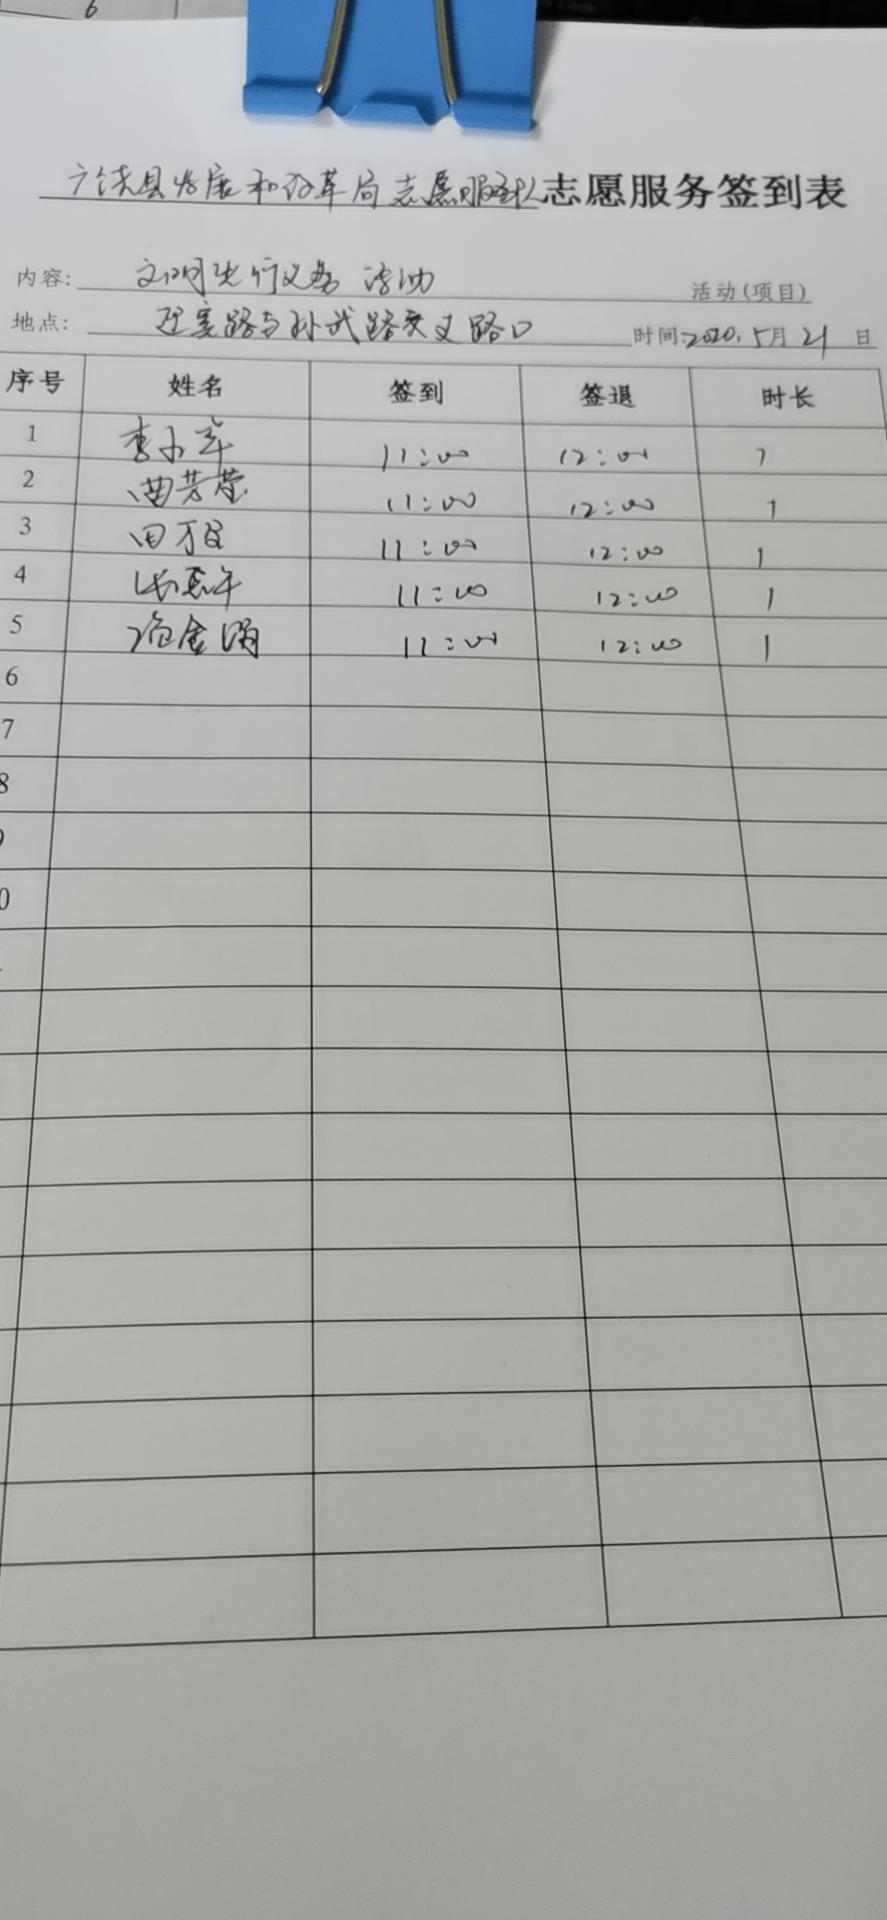 6
广饶县发展和改革局志愿服务队志愿服务签到表
内容: 文明出行义务 活动 活动(项目)
地点: 迎宾路与孙武路交叉路口 时间:2020.5月21日
序号 姓名 签到 签退 时长
1 李小军 11:00 12:00 1
2 曲芳莹 11:00 12:00 1
3 田 11:00 12:00 1
4 11:00 12:00 1
5 11:00 12:00 1
6
7
8
9
0